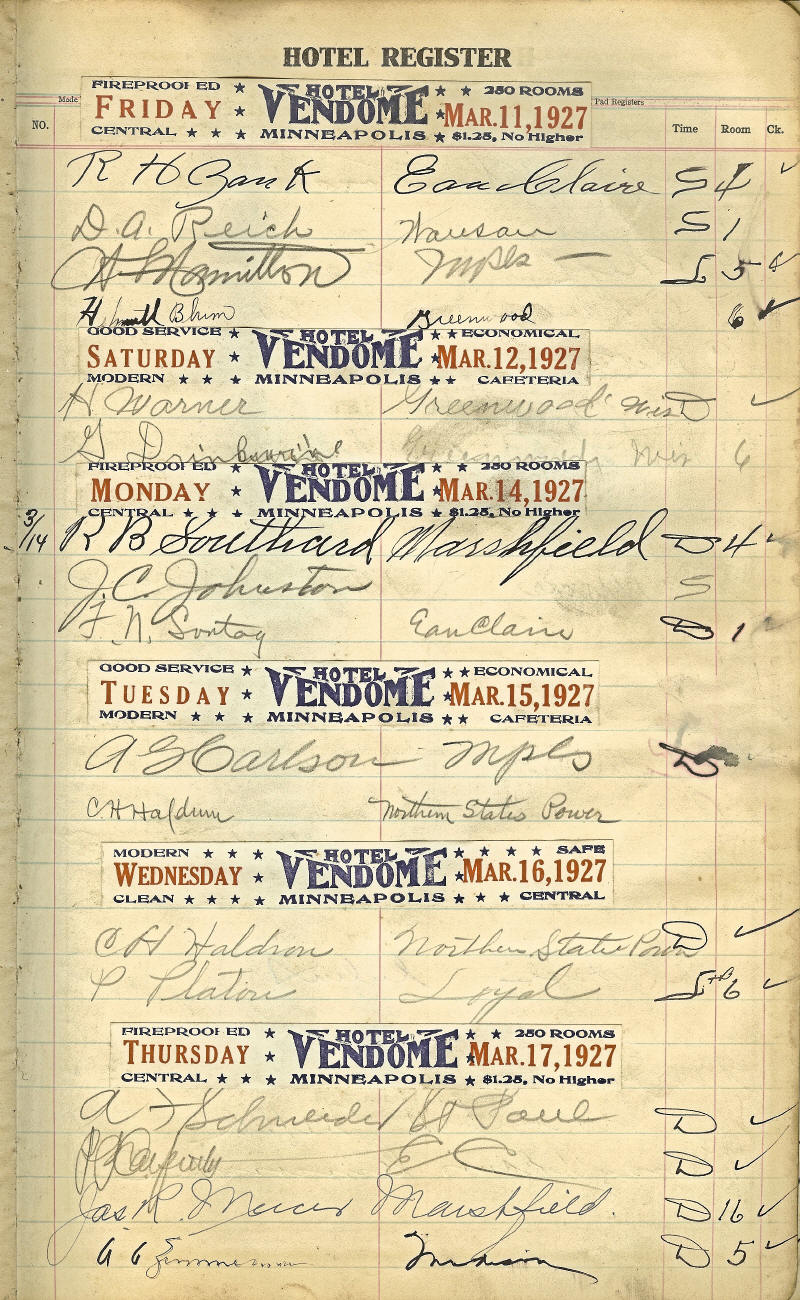 HOTEL REGISTER
Made Pad Registers
NO. Time Room Ck.
FIREPROOFED ★ HOTEL ★ ★ 250 ROOMS
FRIDAY ★ VENDOME ★ MAR. 11, 1927
CENTRAL ★ ★ ★ MINNEAPOLIS ★ $1.25, No Higher
R H Bank Eau Claire S 4 ✓
D. A. Reich Wausau S 1
Hamilton Mpls — S 5
Blum Greenwood 6 ✓
GOOD SERVICE ★ HOTEL ★ ★ ECONOMICAL
SATURDAY ★ VENDOME ★ MAR. 12, 1927
MODERN ★ ★ ★ MINNEAPOLIS ★ ★ CAFETERIA
H Warner Greenwood Wis D ✓
G Wis 6
FIREPROOFED ★ HOTEL ★ ★ 250 ROOMS
MONDAY ★ VENDOME ★ MAR. 14, 1927
CENTRAL ★ ★ ★ MINNEAPOLIS ★ $1.25, No Higher
3/14 R B Southard Marshfield D 4 ✓
J. C. Johnston S
F. N. Sontag Eau Claire D 1 ✓
GOOD SERVICE ★ HOTEL ★ ★ ECONOMICAL
TUESDAY ★ VENDOME ★ MAR. 15, 1927
MODERN ★ ★ ★ MINNEAPOLIS ★ ★ CAFETERIA
A G Carlson Mpls D
C. H Haldrum Northern States Power
MODERN ★ ★ ★ HOTEL ★ ★ ★ ★ SAFE
WEDNESDAY ★ VENDOME ★ MAR. 16, 1927
CLEAN ★ ★ ★ ★ MINNEAPOLIS ★ ★ CENTRAL
C H Haldron Northern States Power D ✓
P Platon Loyal S 6 ✓
FIREPROOFED ★ HOTEL ★ ★ 250 ROOMS
THURSDAY ★ VENDOME ★ MAR. 17, 1927
CENTRAL ★ ★ ★ MINNEAPOLIS ★ $1.25, No Higher
A F Schneider St Paul D ✓
E C D ✓
Jas. R. Mercer Marshfield. D 16 ✓
A C Zimmerman Madison D 5 ✓